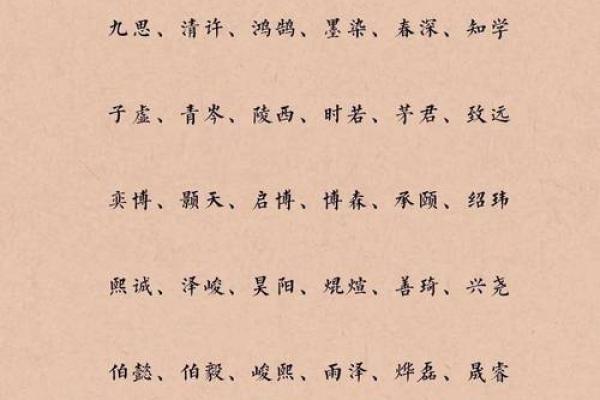 九思、清许、鸿鹄、墨染、春深、知学
子虚、青岑、陵西、时若、茅君、致远
奕博、颢天、启博、博森、承颐、绍玮
熙诚、泽峻、昊阳、焜煊、善琦、兴尧
伯懿、伯毅、峻熙、雨泽、烨磊、晟睿